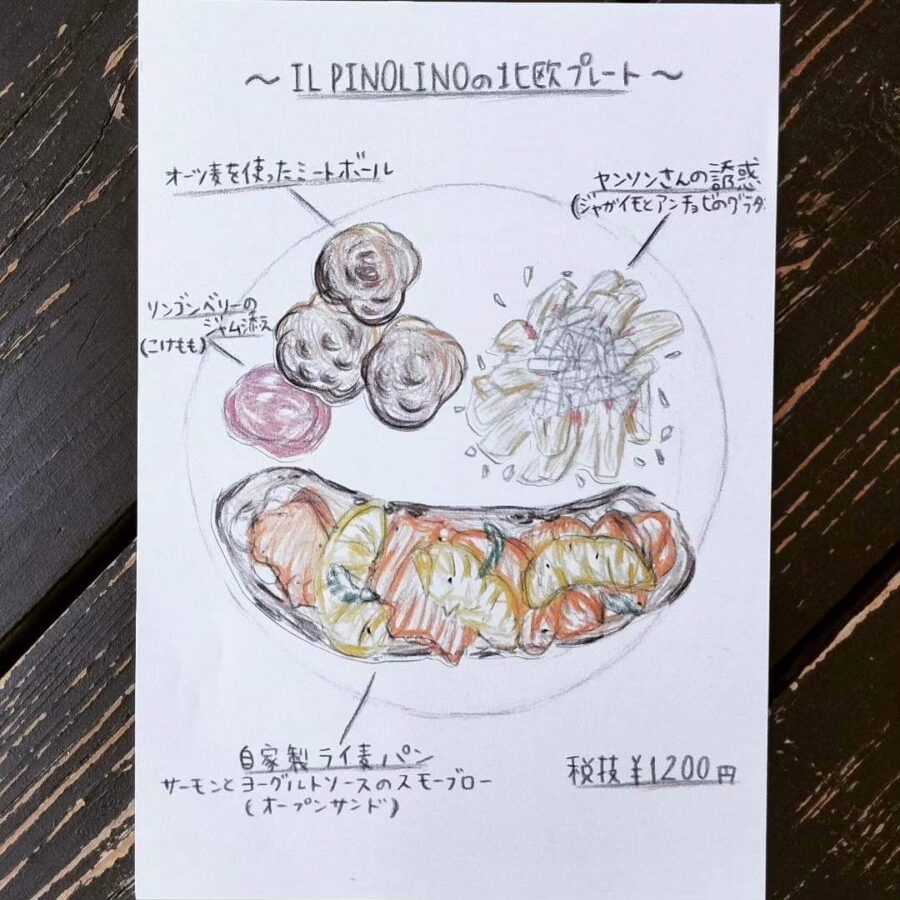 ～ IL PINOLINOの北欧プレート ～
オーツ麦を使ったミートボール
ヤンソンさんの誘惑
(ジャガイモとアンチョビのグラタ
リンゴンベリーの
ジャム添え
(こけもも)
自家製ライ麦パン
サーモンとヨーグルトソースのスモーブロー
(オープンサンド)
税抜¥1200円